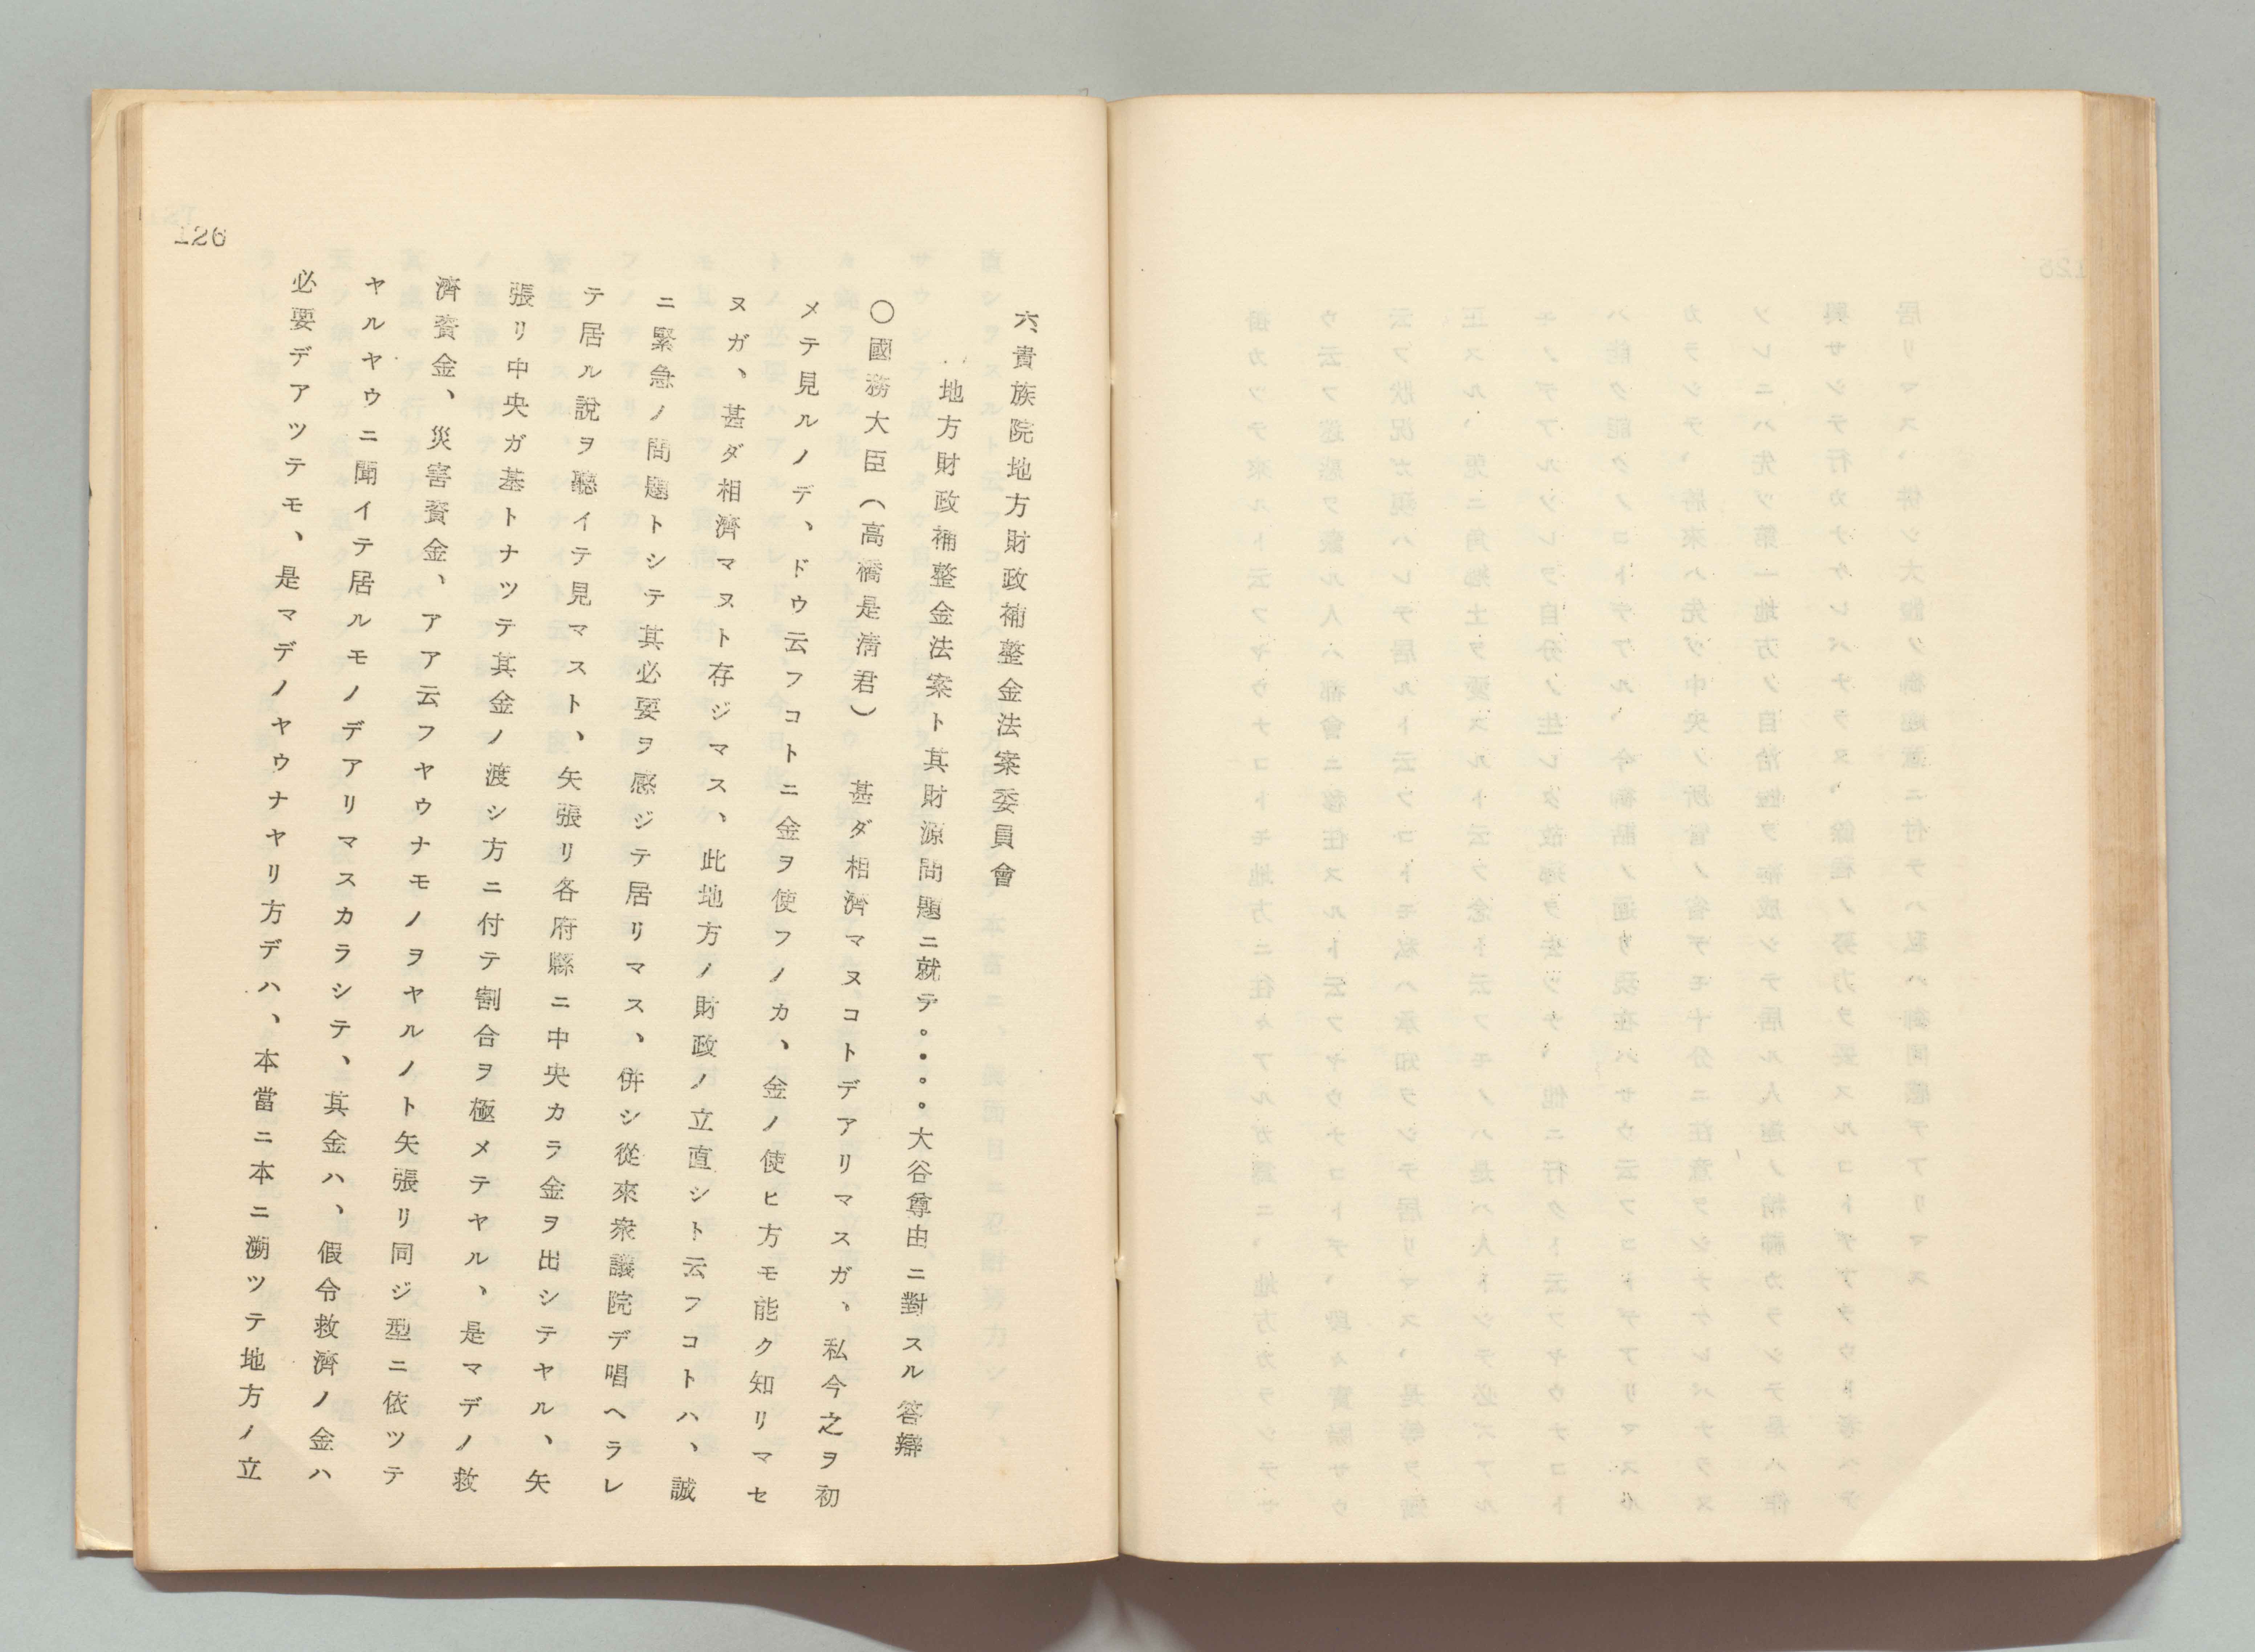 六、貴族院地方財政補整金法案委員會
地方財政補整金法案ト其財源問題ニ就テ。・。。大谷尊由ニ對スル答辯
〇國務大臣（高橋是清君）　甚ダ相濟マヌコトデアリマスガ、私今之ヲ初
メテ見ルノデ、ドウ云フコトニ金ヲ使フノカ、金ノ使ヒ方モ能ク知リマセ
ヌガ、甚ダ相濟マヌト存ジマス、此地方ノ財政ノ立直シト云フコトハ、誠
ニ緊急ノ問題トシテ其必要ヲ感ジテ居リマス、併シ從來衆議院デ唱ヘラレ
テ居ル說ヲ聽イテ見マスト、矢張リ各府縣ニ中央カラ金ヲ出シテヤル、矢
張リ中央ガ基トナツテ其金ノ渡シ方ニ付テ割合ヲ極メテヤル、是マデノ救
濟資金、災害資金、アア云フヤウナモノヲヤルノト矢張リ同ジ型ニ依ツテ
ヤルヤウニ聞イテ居ルモノデアリマスカラシテ、其金ハ、假令救濟ノ金ハ
必要デアツテモ、是マデノヤウナヤリ方デハ、本當ニ本ニ溯ツテ地方ノ立
126